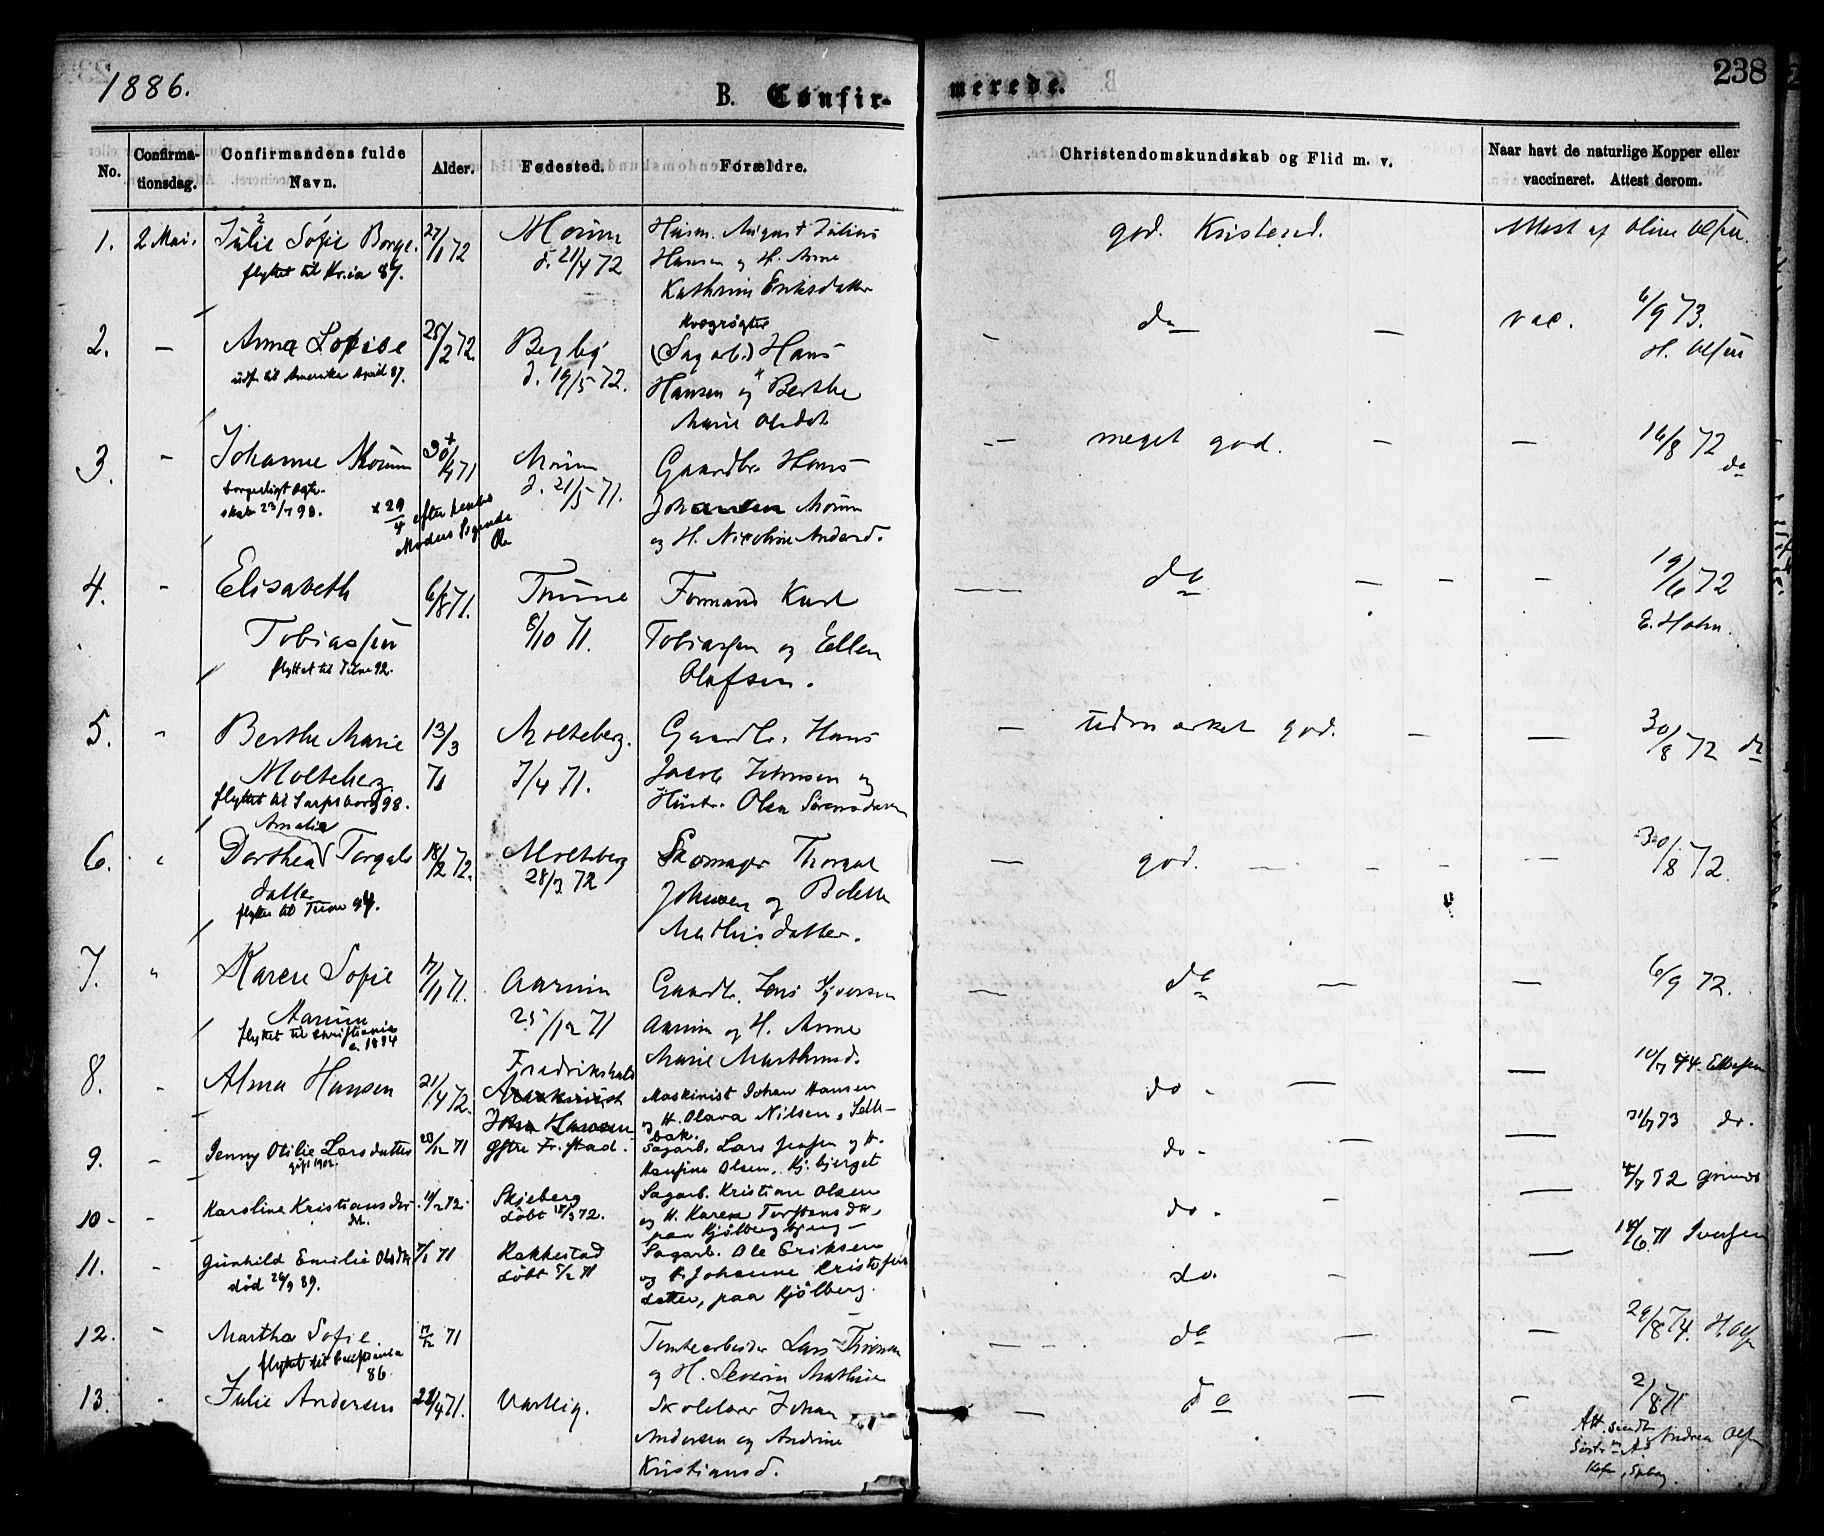 1886.
238
B. Confir-
merede.
No.
Confirma-
tionsdag.
Confirmandens fulde
Navn.
Alder.
Fødested.
Forældre.
Christendomskundskab og Flid m. v.
Naar havt de naturlige Kopper eller
vaccineret. Attest derom.
1. 2 Mai. Julie Sofie Borge. 27/1 72
flyttet til Kr.ia 87.
d. 21/4 72
Husm. August Julius
Hansen og H. Anne
Kathrine Eriksdatter
god. Kristend.
Attest af Oline Olsen.
2. — Anna Lovise 25/2 72.
udf. til Amerika April 87.
Begby
d. 19/5 72.
Kvægrøgter
(Sag arb.) Hans
Hansen og Berthe
Marie Olsdat
do —
vac. 6/9 73.
H. Olsen
3. Johanne Morum 30/4 71
borgerligt ægte-
skab 23/7 98.
x 29/4 efter hendes
Moders Sigende
Morum
d. 21/5 71.
Gaardbr. Hans
Johansen Morum
og H. Nicoline Andersd.
meget god. — — 16/8 72
do
4. Elisabeth 6/8 71.
Tobiassen
flyttet til Tune 92.
Thune
8/10 71.
Formand Karl
Tobiassen og Ellen
Olafsen.
do — — 19/6 72
E. Holm.
5. Berthe Marie 13/3
Molteberg 71
flyttet til Sarpsborg 98.
Molteberg.
7/4 71.
Gaardbr. Hans
Jacob Johnsen og
Hustr. Olea Sørensdatter
— udmærket god. — — 30/8 72 do
6. Dorthea Amalie Torgals 18/2 72.
datter
flyttet til Tune 94.
Molteberg
28/3 72
Skomager Thorgal
Johnsen og Bolette
Mathisdatter.
— god. — 30/8 72
7. Karen Sofie 17/11 71.
Aarum
flyttet til Christiania
a. 1894
Aarum
25/12 71
Gaardbr. Jens Syversen
Aarum og H. Anne
Marie Marthinsd.
— do — — 6/9 72.
8. Alma Hansen 21/4 72.
Fredrikshald
Maskinist
John Hansen
Maskinist Johan Hansen
og H. Olava Nilsen, Sell-
bak.
do - — — 10/7 74
9. Jenny Otilie Larsdatter 28/12 71
gift 1902.
Østre Fr.stad.
Sagarb. Lars Jensen og H.
Hansine Olsen, Kj. bjerget
do - — — 31/7 73 do.
10 - Karoline Kristiansdat-
dt.
11/2 72.
Skjeberg
døbt 18/3 72.
Sagarb. Kristian Olsen
og H. Karen Torstensdtr.
paa Kjølbergbjerg —
do - — 4/7 72
11. Gunhild Emilie Olsdtr 7/1 71
død 26/9 89.
Rakkestad
døbt 5/2 71
Sagarb. Ole Eriksen
og H. Johanne Kristofer
datter, paa Kjølberg.
do. — 14/6 71 Iversen
12. Martha Sofie. 17/12 71
flyttet til
86
Tomtearbeider Lars Thoresen
og H. Severine Mathisen
do — — 29/8 74.
13. Julie Andersen 28/4 71.
Varteig.
Skolelærer Johan
Andersen og Andrine
Kristiansd.
do — - 2/8 71
Andrea Olsen
Att. sendt